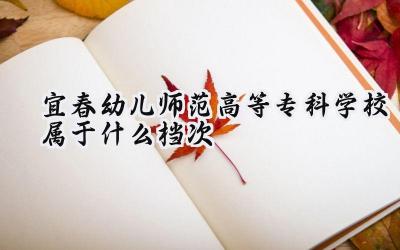 宜春幼儿师范高等专科学校
属于什么档次